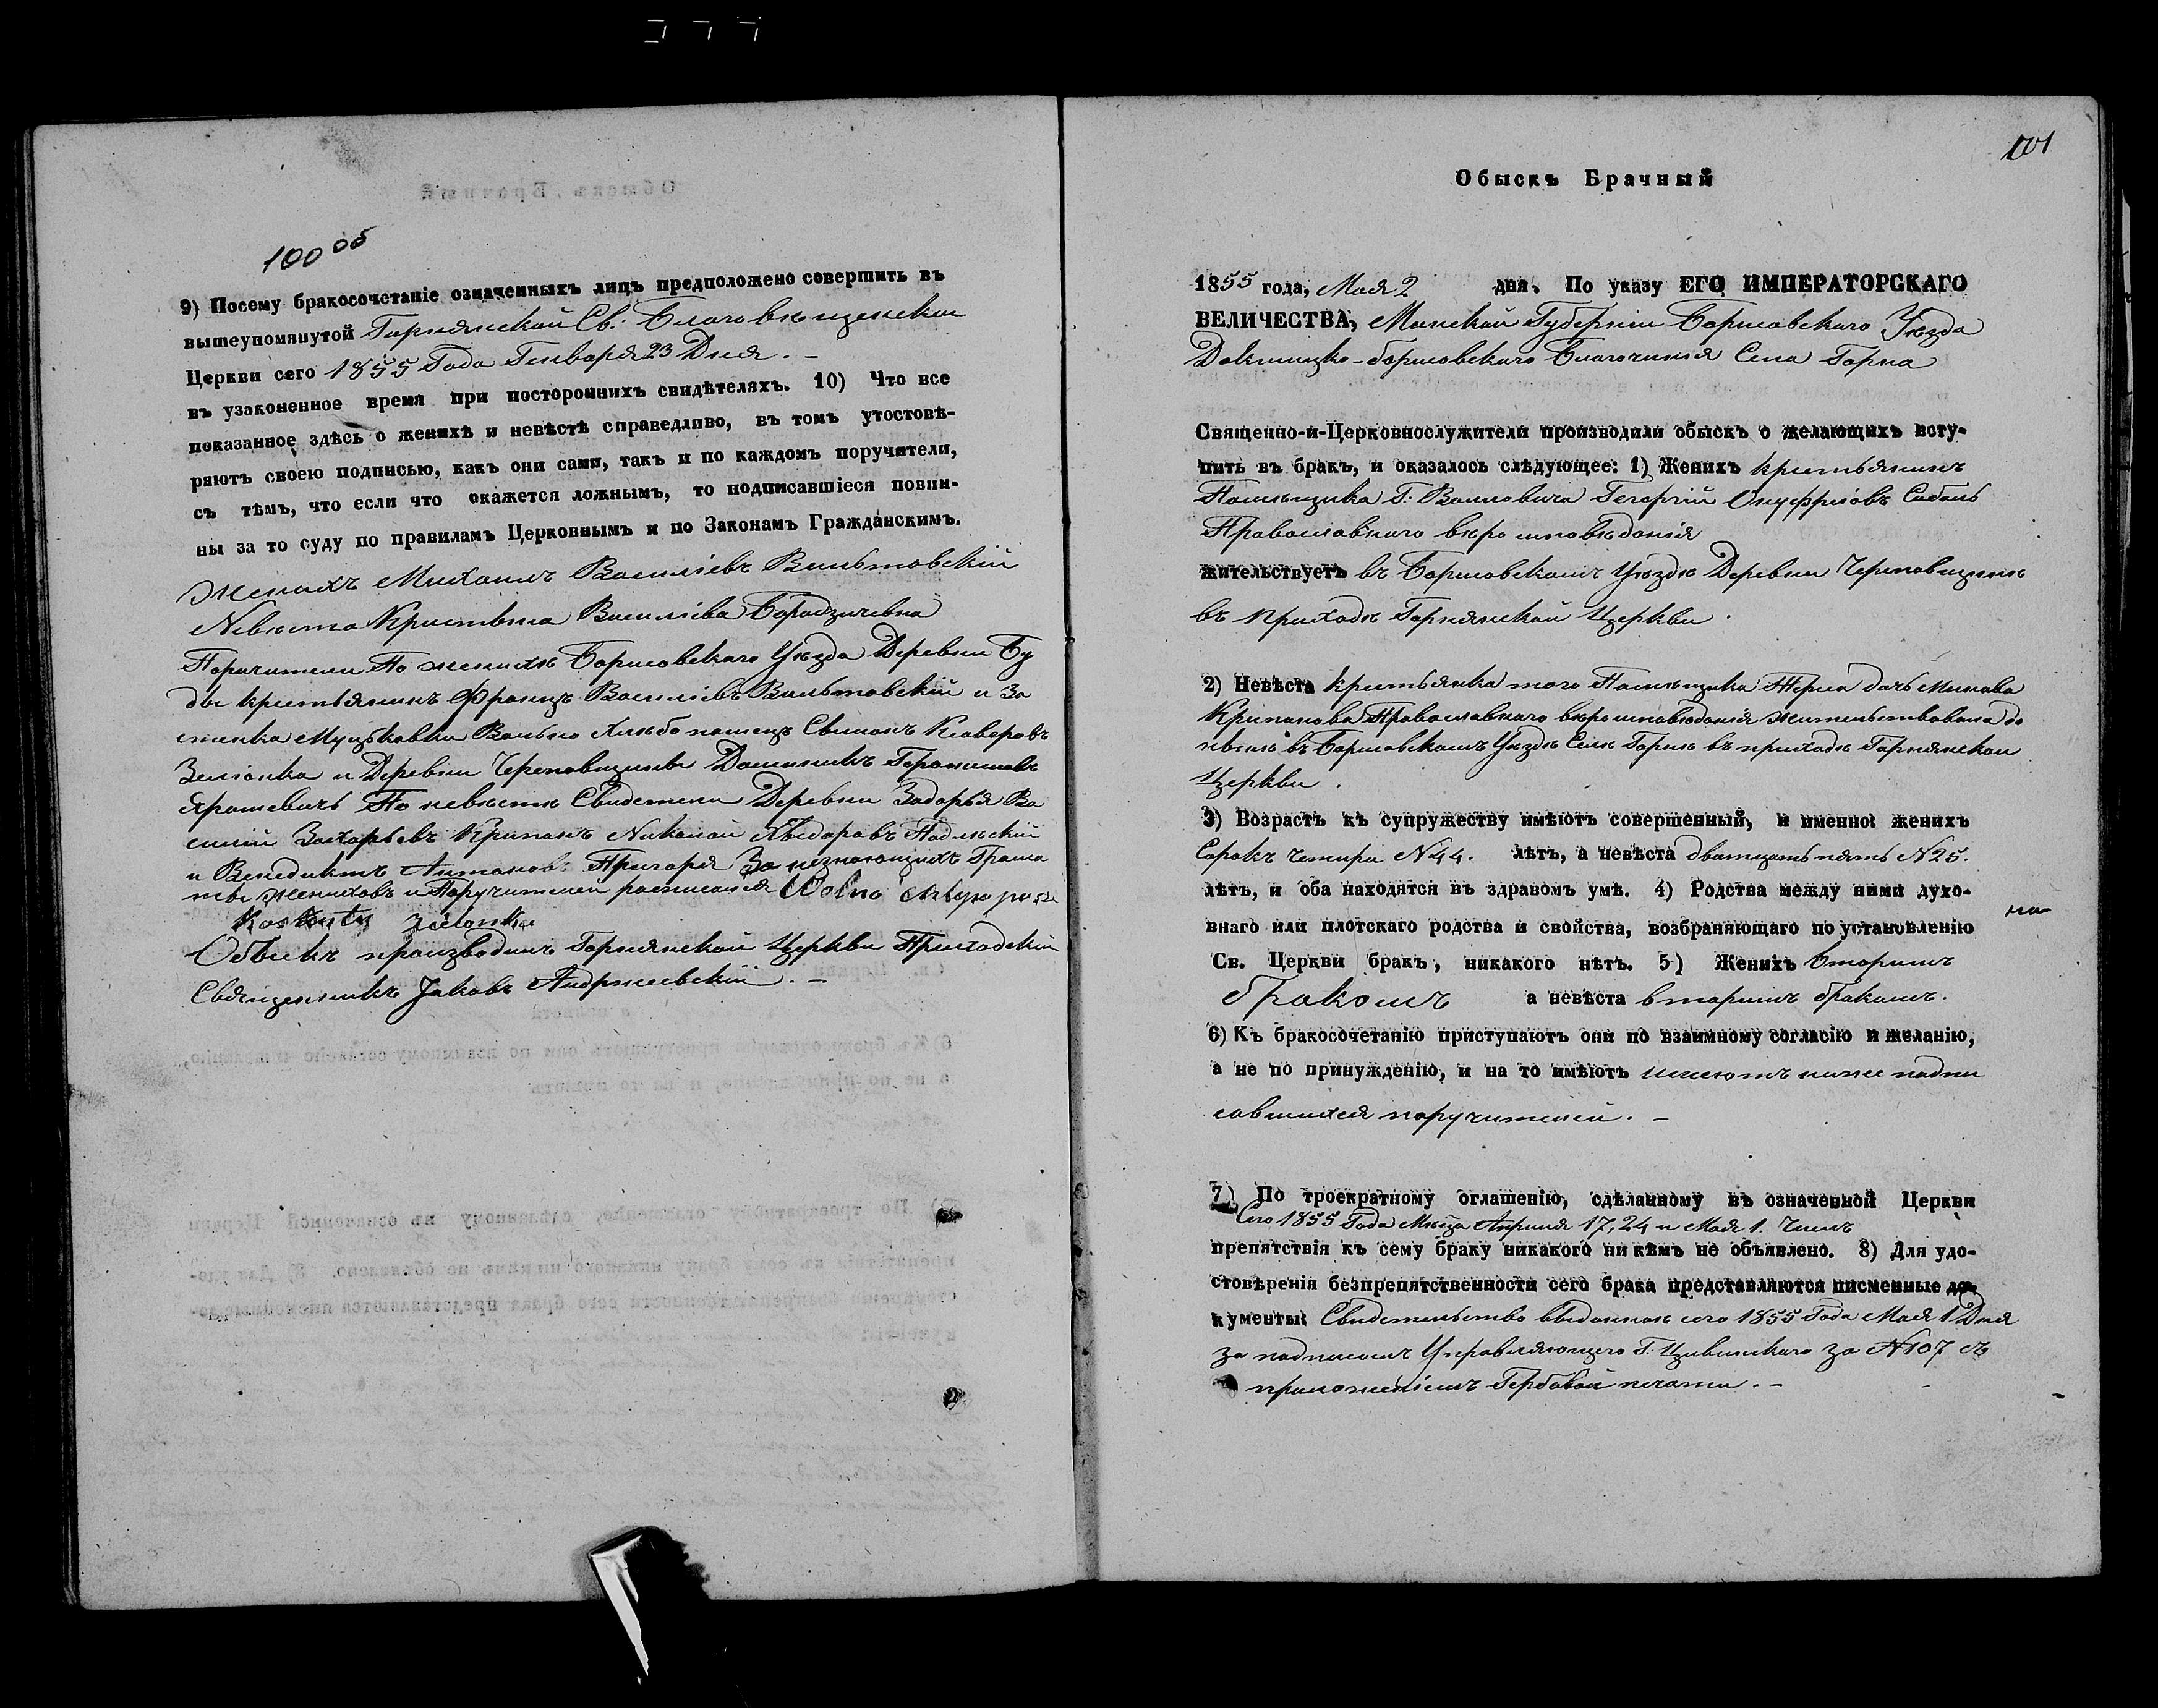 100 об
9) Посему бракосочетаніе означенныхъ лицъ предположено совершить въ
вышеупомянутой Горнянской Св: Благовѣщенской
Церкви сего 1855 Года Генваря 23 Дня. –
въ узаконенное время при постороннихъ свидѣтеляхъ. 10) Что все
показанное здѣсь о женихѣ и невѣстѣ справедливо, въ томъ утостовѣ-
ряютъ своею подписью, какъ они сами, такъ и по каждомъ поручители,
съ тѣмъ, что если что окажется ложнымъ, то подписавшіеся повин-
ны за то суду по правиламъ Церковнымъ и по Законамъ Гражданскимъ.
Женихъ Михаилъ Василіевъ Вильтовскій
Невѣста Васильева
Поручители По женихѣ Борисовскаго Уѣзда Деревни Бу
ды крестьянинъ Францъ Василіевъ Вильтовскій и За
стенка Вольно хлѣбопашецъ
Зеліонка и Деревни Череповщины
По невѣстѣ Свидетели Деревни Задорья Ва
силій Захорьевъ Крипанъ Николай
и Венедиктъ Антоновъ За незнающихъ Грамо
ты жениховъ и Поручителей росписался Wolno
Zielonka
Обыскъ производилъ Горнянской Церкви Приходскій
Священникъ Іаковъ Андржеевскій. –
101
Обыскъ Брачный
1855 года, Мая 2 дня. По указу ЕГО ИМПЕРАТОРСКАГО
ВЕЛИЧЕСТВА, Минской Губерніи Борисовскаго Уѣзда
Докшицко-Борисовскаго Благочинія Села Горна
Священно-и-Церковнослужители производили обыскъ о желающихъ всту-
пить въ бракъ, и оказалось слѣдующее: 1) Женихъ крестьянинъ
Помѣщика Г: Воловича Георгій Онуфріовъ Соболь
Православнаго вѣроисповѣданія
жительствуетъ въ Борисовскомъ Уѣздѣ Деревни Череповщинѣ
въ приходѣ Горнянской Церкви.
2) Невѣста крестьянка того Помѣщика дочь
Крипанова Православнаго вѣроисповѣданія жительствовала до
нынѣ въ Борисовскомъ Уѣздѣ Селѣ Горнѣ въ приходѣ Горнянской
Церкви.
3) Возрастъ къ супружеству имѣютъ совершенный, и именно: женихъ
Сорокъ четыри N 44. лѣтъ, а невѣста дватцать пять N 25.
лѣтъ, и оба находятся въ здравомъ умѣ. 4) Родства между ними духо-
внаго или плотскаго родства и свойства, возбраняющаго по установленію
Св. Церкви бракъ, никакого нѣтъ. 5) Женихъ вторимъ
бракомъ а невѣста вторимъ бракомъ.
6) Къ бракосочетанію приступаютъ они по взаимному согласію и желанію,
а не по принужденію, и на то имѣютъ имеютъ ниже подпи
савшихся поручителей. –
7) По троекратному оглашенію, сдѣланному въ означенной Церкви
Сего 1855 Года Мѣсца Апреля 17, 24 и Мая 1. Числъ
препятствія къ сему браку никакого ни кѣмъ не объявлено. 8) Для удо-
стовѣренія безпрепятственности сего брака представляются писменные до-
кументы: Свидетельство выданное сего 1855 Года Мая 1 Дня
за подписомъ Управляющаго Г. за N 107 съ
приложеніемъ Гербовой печати. –